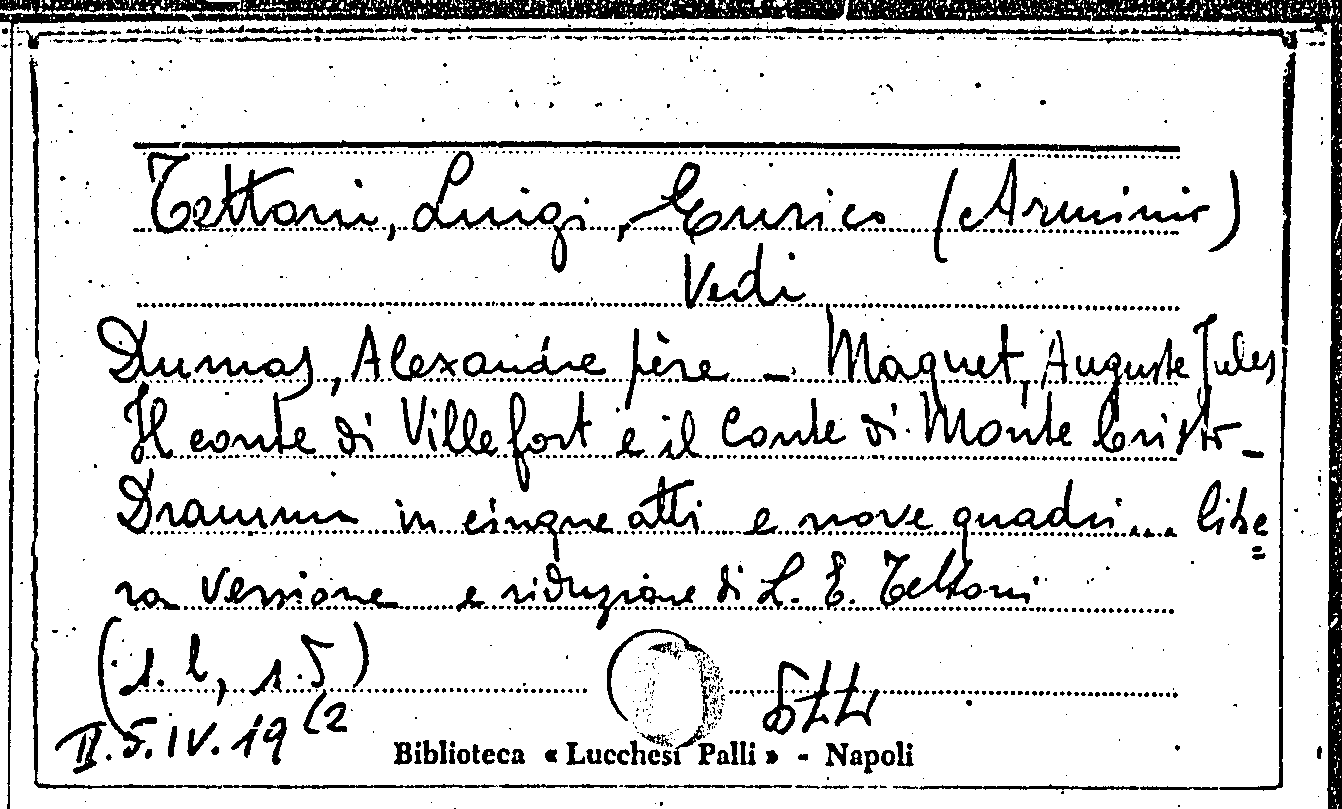 Tettoni, Luigi, Enrico (Arminio)
Vedi
Dumas, Alexandre père - Maquet, Auguste Jules
Il conte di Villefort e il Conte di Monte Cristo -
Dramma in cinque atti e nove quadri... libe=
ra versione e riduzione di L. E. Tettoni
(s. l., s. t)
II. 5. IV. 19 (2
Biblioteca « Lucchesi Palli » - Napoli